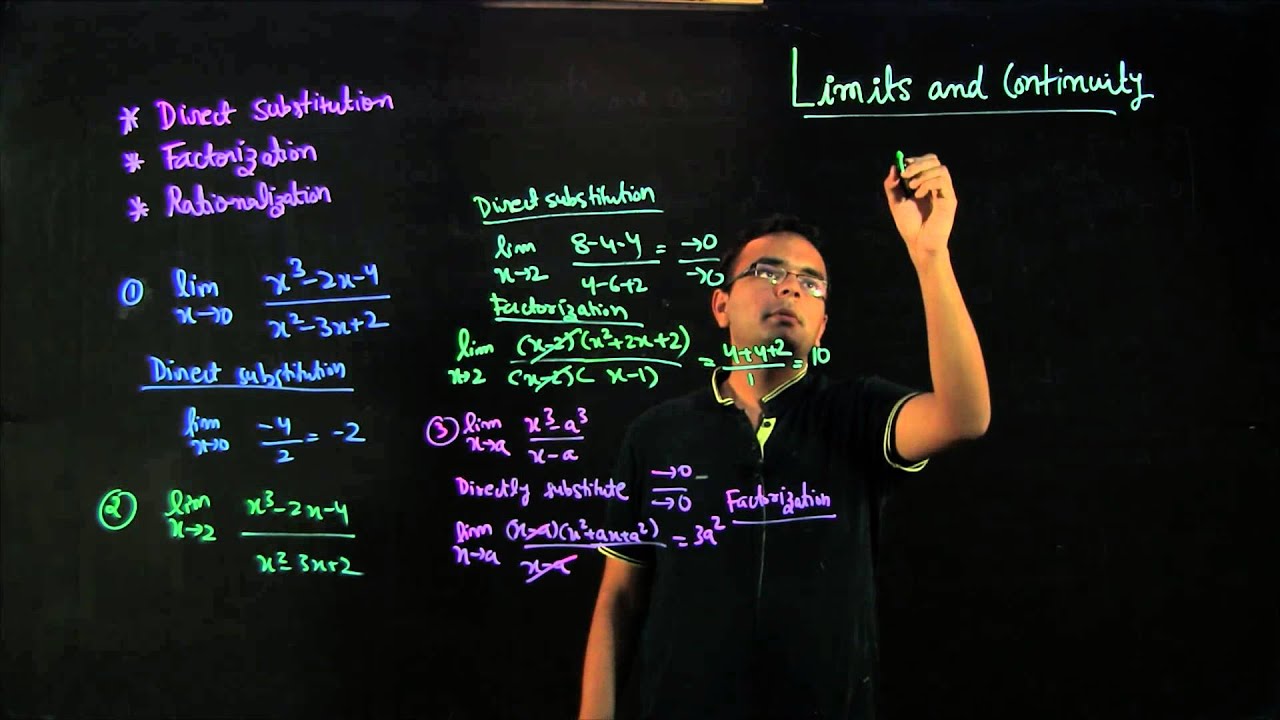 Limits and Continuity
* Direct substitution
* Factorization
* Rationalization
① lim x→0 (x³-2x-4)/(x²-3x+2)
Direct substitution
lim x→0 -4/2 = -2
② lim x→2 (x³-2x-4)/(x²-3x+2)
Direct substitution
lim x→2 (8-4-4)/(4-6+2) = →0/→0
Factorization
lim x→2 (x-2)(x²+2x+2)/(x-2)(x-1) = (4+4+2)/1 = 10
③ lim x→a (x³-a³)/(x-a)
Directly substitute →0/→0
Factorization
lim x→a (x-a)(x²+ax+a²)/(x-a) = 3a²